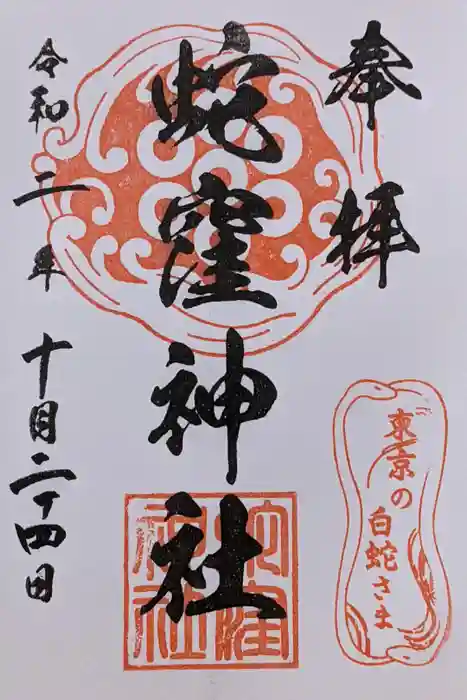 奉拝
蛇窪神社
令和二年
十月二十四日
東京の
白蛇さま
蛇窪
神社